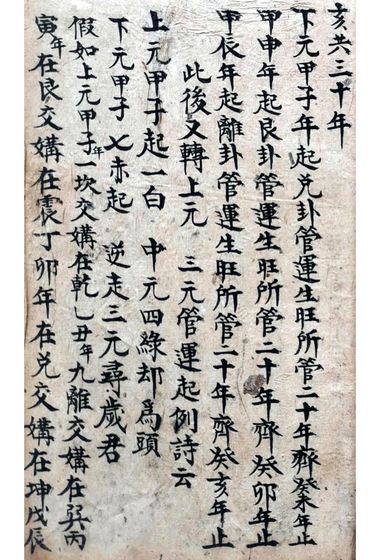 亥共三十年
下元甲子年起兌卦管運生旺所管二十年齊癸未年止
甲申年起艮卦管運生旺所管二十年齊癸卯年止
甲辰年起離卦管運生旺所管二十年齊癸亥年止
此後又轉上元　三元管運起例詩云
上元甲子起一白　中元四綠却為頭
下元甲子七赤起　逆走三元尋歲君
假如上元甲子年一坎交媾在乾乙丑年九離交媾在巽丙
寅年在艮交媾在震丁卯年在兌交媾在坤戊辰